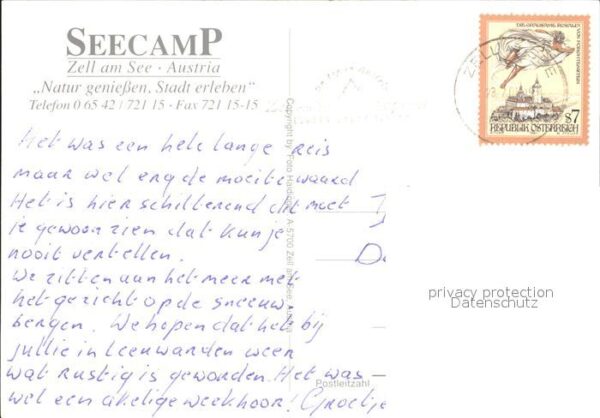 SEECAMP
Zell am See · Austria
„Natur genießen, Stadt erleben“
Telefon 0 65 42 / 721 15 - Fax 721 15-15
Het was een hele lange reis
maar wel erg de moeite waard
Het is hier schitterend dit moet
je gewoon zien dat kun je
nooit vertellen.
We zitten aan het meer met
het gezicht op de sneeuw
bergen. We hopen dat het bij
jullie in Leeuwarden weer
wat rustig is geworden. Het was
wel een akelige week hoor! Groetje
Copyright by Foto A-5700 Zell am See, Austria
Postleitzahl
REPUBLIK ÖSTERREICH
S7
privacy protection
Datenschutz